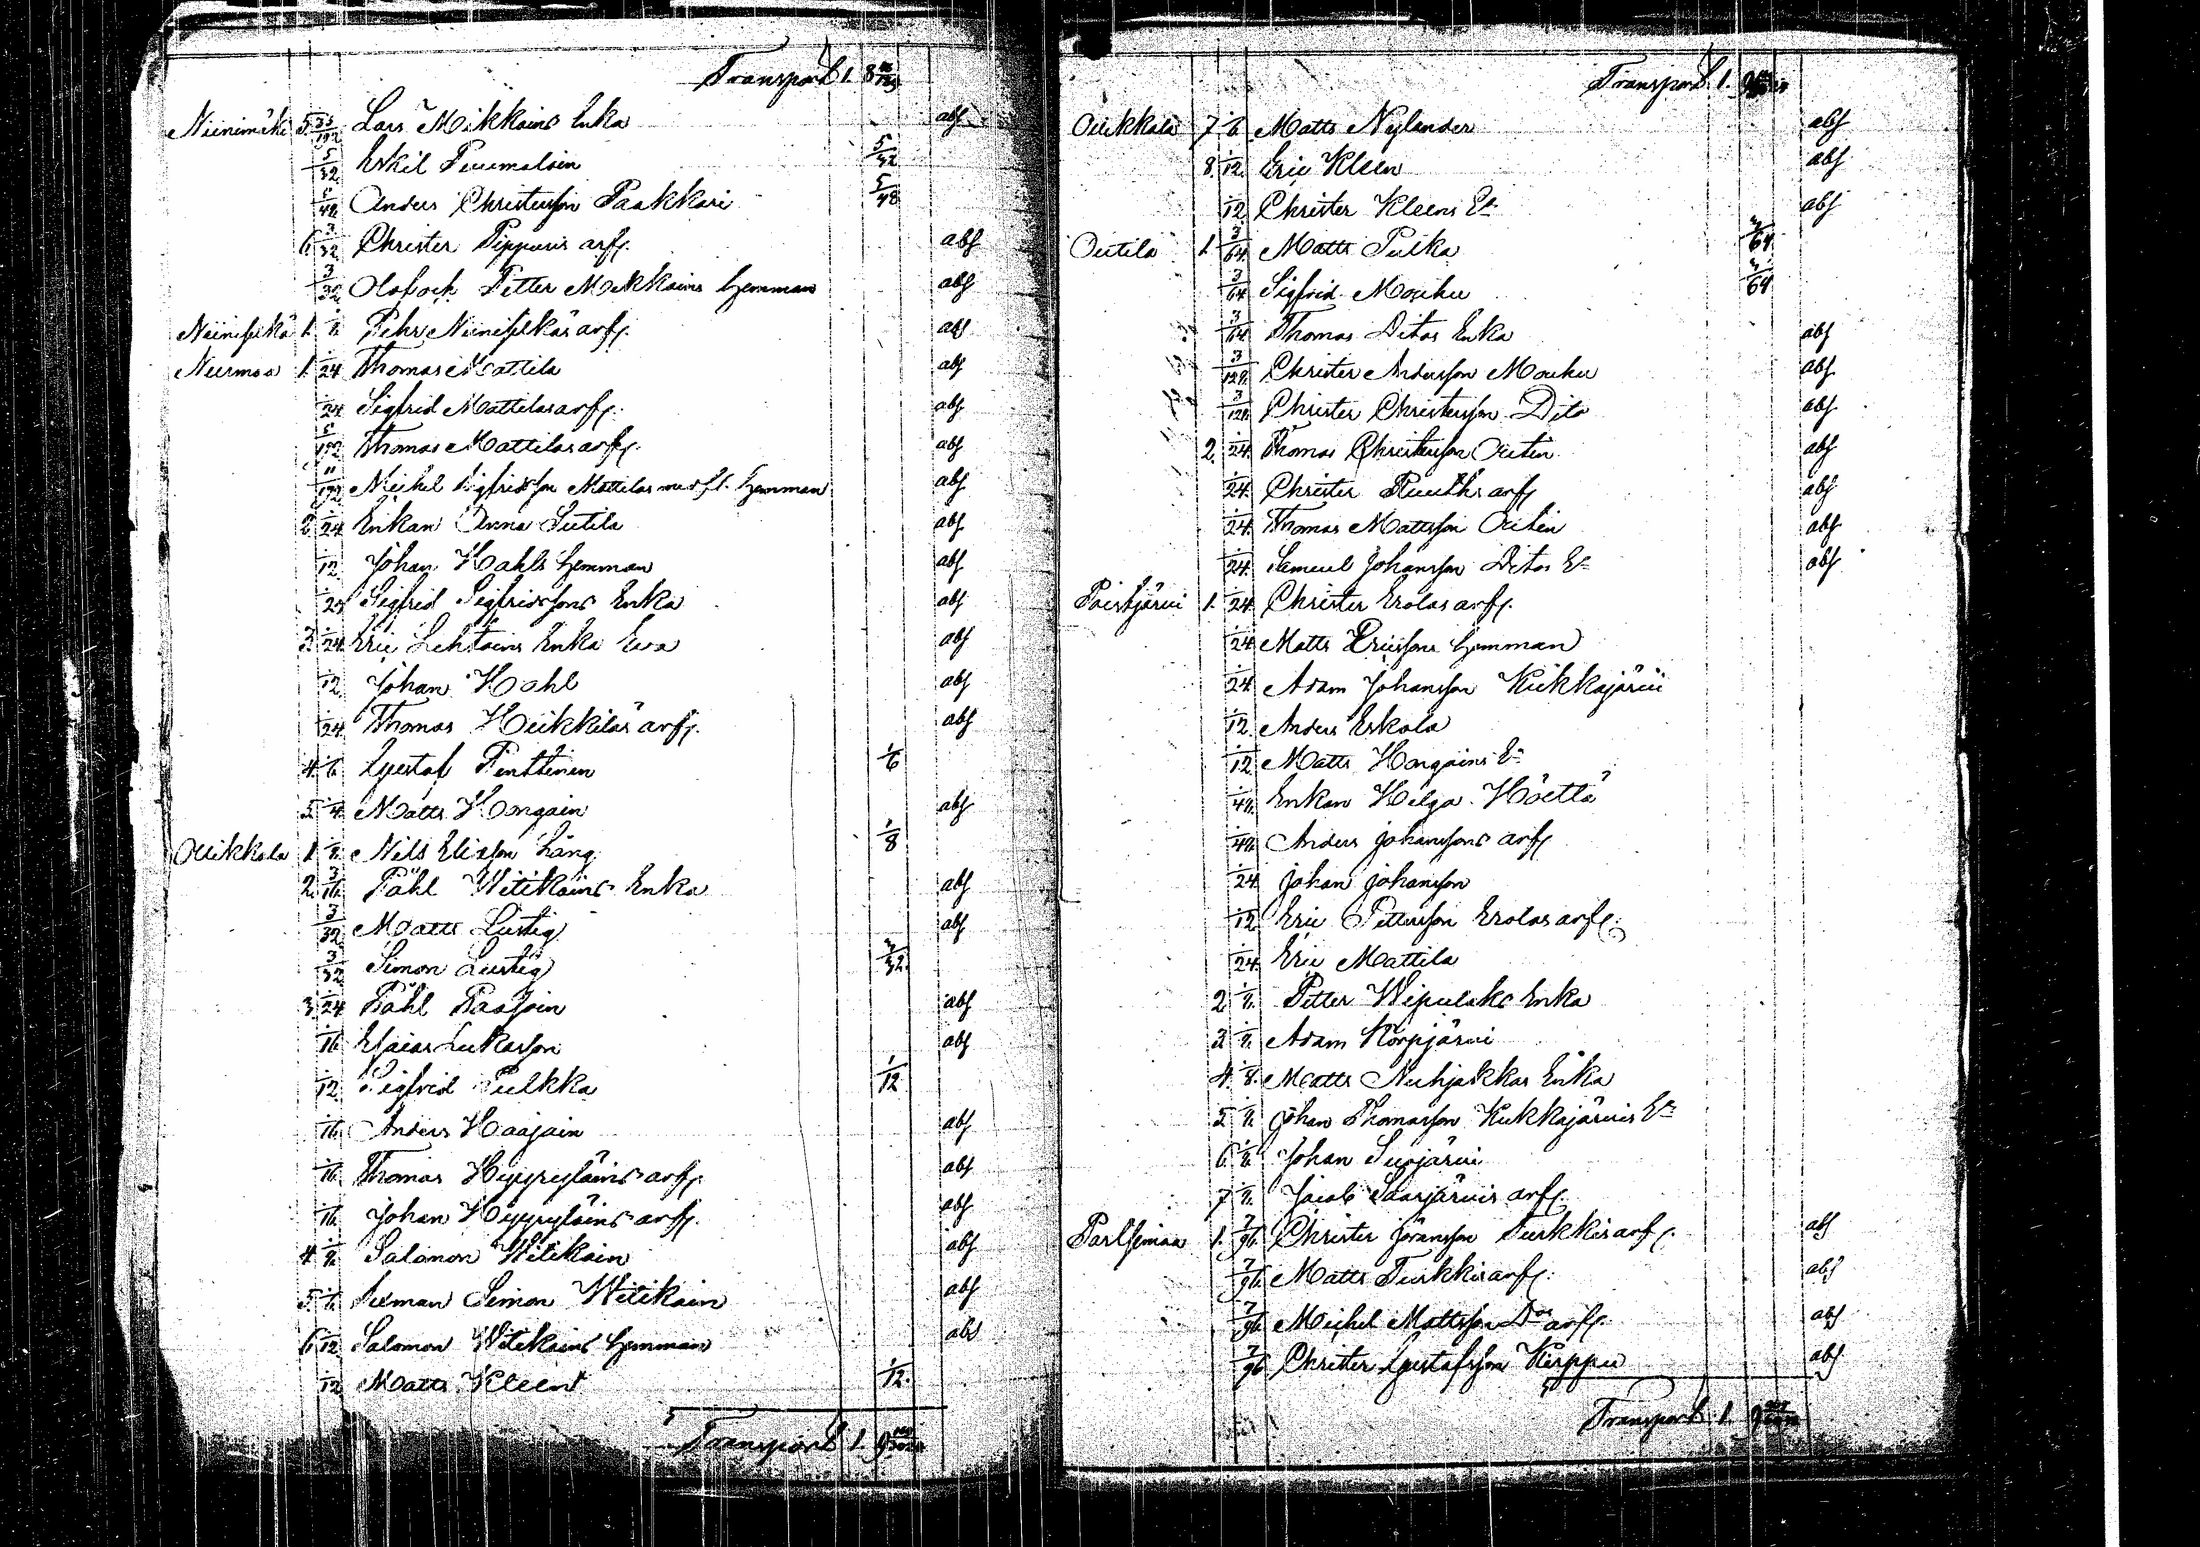 Transport 1. 8
Niinimäki 5. Lars Mikkains Enka abs
5/32 Eskil Puumalain 5/32
5/48 Anders Christersson Paakkari 5/48
6. 3/32 Christer Pippuris arfv. abs
3/32 Olof och Petter Mikkains hemman abs
Niiniselkä 1. Pehr Niiniselkäs arfv. abs
Nurmaa 1. 1/24 Thomas Mattila abs
1/24 Sigfrid Mattilas arfv. abs
5/192 Thomas Mattilas arfv. abs
11/192 Michel Sigfridsson Mattilas hemman abs
2. 1/24 Enkan Anna Sutila abs
1/12 Johan Hahls hemman abs
1/24 Sigfrid Sigfridssons Enka abs
3. 1/24 Eric Lehtoins Enka Eva abs
1/12 Johan Hahl abs
1/24 Thomas Heikkiläs arfv. abs
4. 1/6 Gustaf Penttinen 1/6
5. 1/4 Matts Hongain abs
Ollikkala 1. 1/8 Nils Eliasson Lång 1/8
2. 3/16 Påhl Witikains Enka abs
3/32 Matts Lustig abs
3/32 Simon Lustig 3/32
3. 1/24 Påhl Paasoin abs
1/16 Esaias Lukasson abs
1/12 Sigfrid Pulkka 1/12
1/16 Anders Haajain abs
1/16 Thomas Hyyryläins arfv. abs
1/16 Johan Hyyryläins arfv. abs
4. 1/8 Salomon Witikain abs
5. 1/6 Simon Witikain abs
6. 1/12 Salomon Witikains hemman abs
1/12 Matts Kleen 1/12.
Transport 1. 9
Transport 1. 9
Ollikkala 7. 1/6 Matts Nylander abs
8. 1/12 Eric Kleen abs
1/12 Christer Kleens Ea abs
Outila 1. 3/64 Matts Pulka 3/64
3/64 Sigfrid Mouhu 3/64
3/64 Thomas Ditos Enka abs
3/128 Christer Andersson Mouhu abs
3/128 Christer Christersson Dito abs
2. 1/24 Thomas Christersson Outin abs
1/24 Christer Ruuths arfv abs
1/24 Thomas Mattsson Outin abs
1/24 Samuel Johansson Ditos Ea abs
Paistjärvi 1. 1/24 Christer Erolas arfv.
1/24 Matts Ericssons hemman
1/24 Adam Johansson Kukkajärvi
1/12 Anders Eskola
1/12 Matts Hongains Ea
1/48 Enkan Helga Höltta
1/48 Anders Johanssons arfv
1/24 Johan Johansson
1/12 Eric Pettersson Erolas arfv.
1/24 Eric Mattila
2. 1/8 Petter Wipulaks Enka
3. 1/8 Adam Korpjärvi
4. 1/8 Matts Nuhjakkas Enka
5. 1/8 Johan Thomasson Kukkajärvis Ea
6. 1/8 Johan Suojärvi
7. 1/8 Jacob Saarjärvis arfv.
Parsimaa 1. 7/96 Christer Göransson Turkkis arfv. abs
7/96 Matts Turkkis arfv. abs
7/96 Michel Mattsson Dos arfv. abs
7/96 Christer Gustafsson Kirppu abs
Transport 1. 9